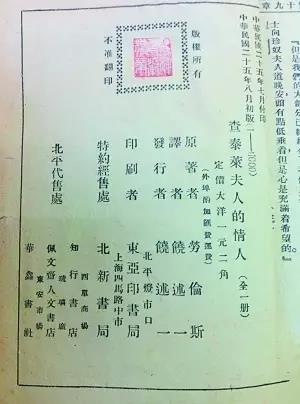 章九十
但是我們的大部分已經
士向珍奴夫人道晚安頭有點低垂着但是心是充滿着希望的。
中華民國二十五年七月付印
中華民國二十五年八月初版
查泰萊夫人的情人(全一冊)
定價大洋一元二角
(外埠酌加匯費運費)
版權所有
不准翻印
原著者 勞倫斯
譯者 饒述一
發行者 饒述一
北平燈市口
印刷者 東亞印書局
上海四馬路中市
特約經售處 北新書局
北平代售處
西單商場
知行書店
琉璃廠
佩文齋人文書店
東安市場
華鑫書社